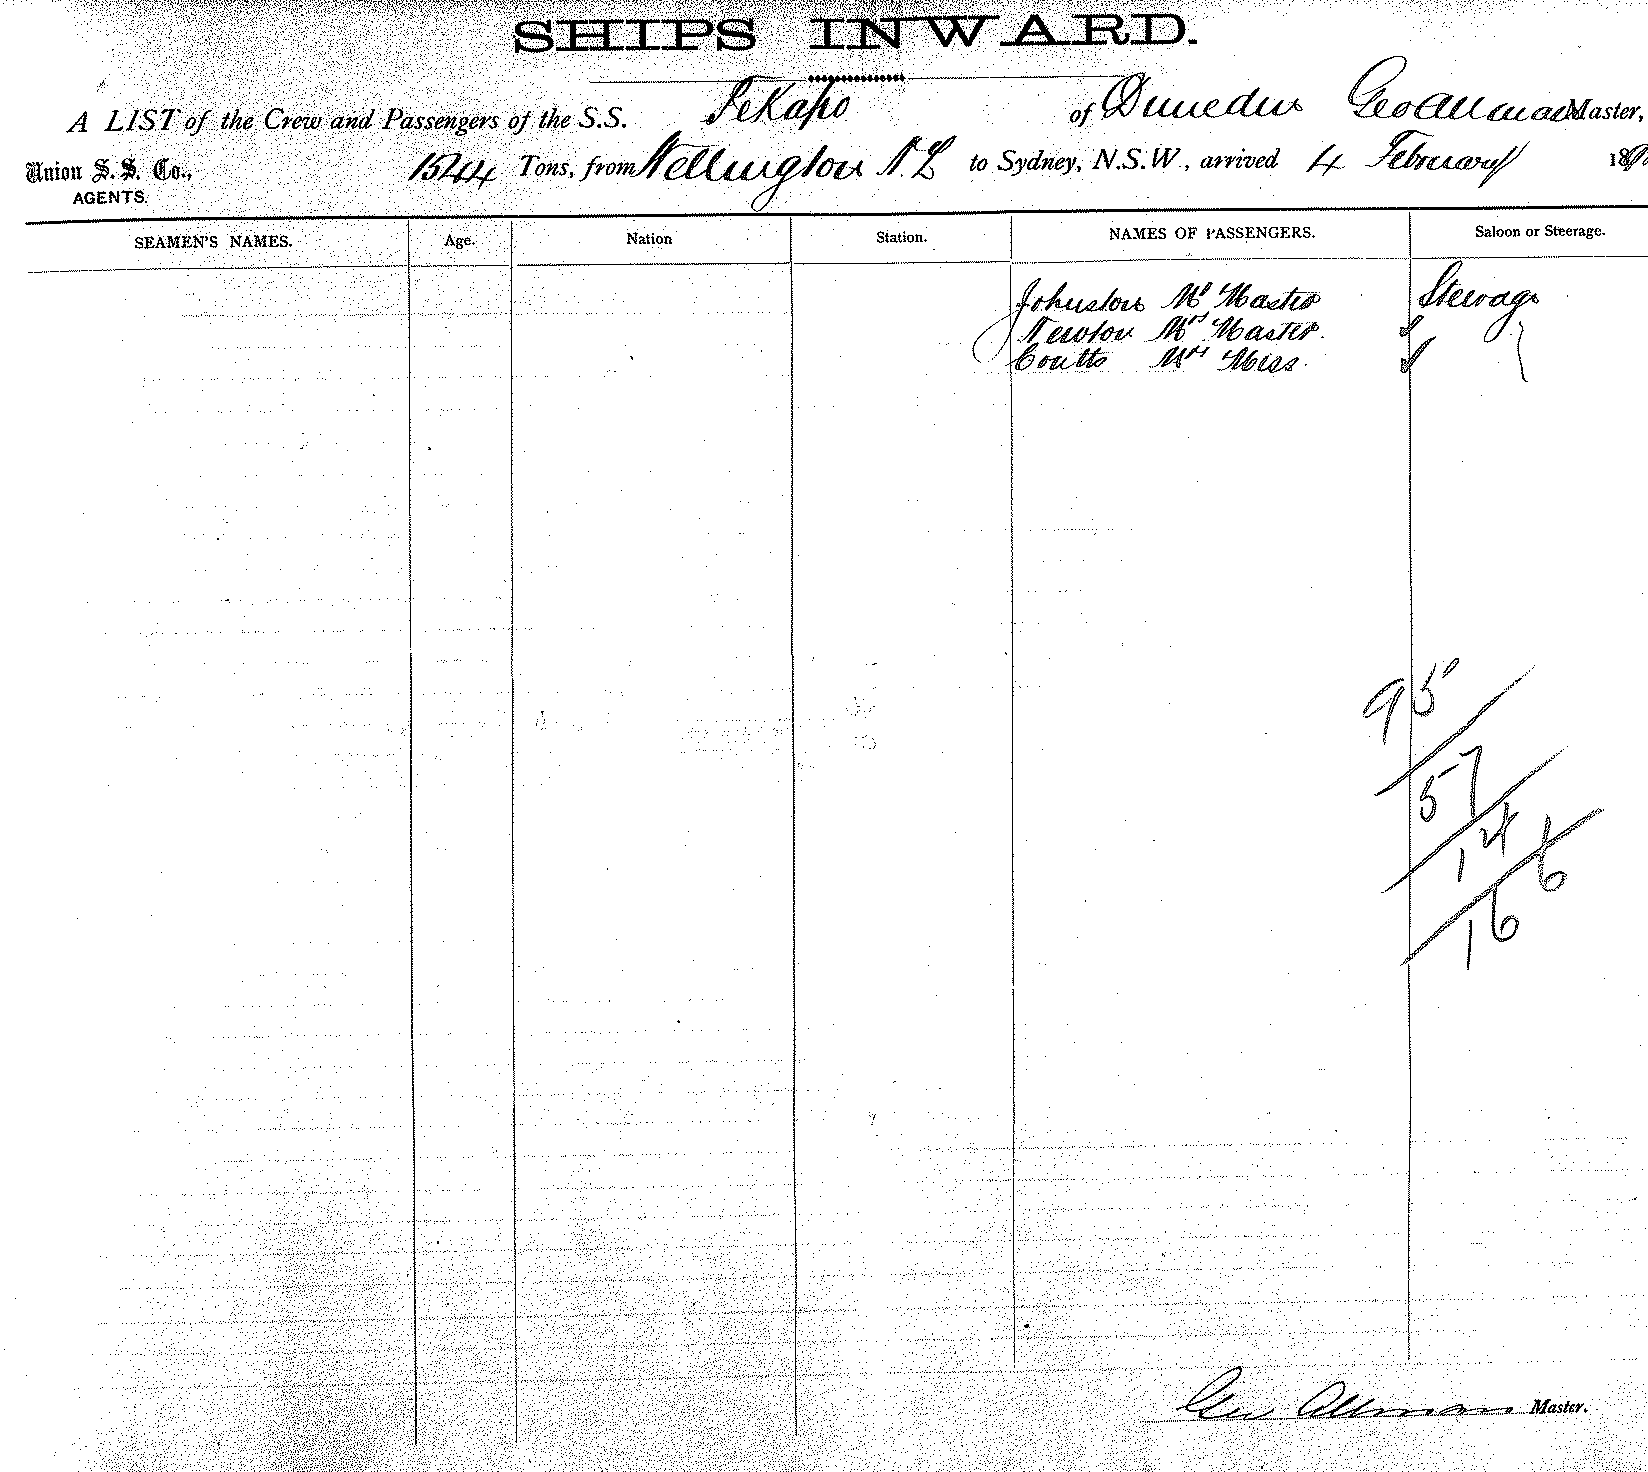 SHIPS INWARD.
A LIST of the Crew and Passengers of the S.S. Tekapo of Dunedin Geo Allman Master,
Union S. S. Co., 1544 Tons, from Wellington N.Z to Sydney, N.S.W., arrived 4 February 189
AGENTS.
SEAMEN'S NAMES. Age. Nation Station. NAMES OF PASSENGERS. Saloon or Steerage.
Johnston Mr Master Steerage
Newton Mrs Master.
Coutts Mrs Miss.
95
57
14 6
16
Geo Allman Master.